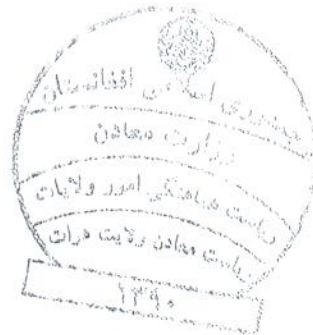 جمهوری اسلامی افغانستان
وزارت معادن
ریاست هماهنگی امور ولایات
ریاست معادن ولایت هرات
۱۳۹۰